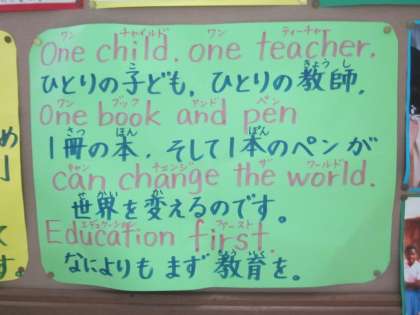 ワン チャイルド ワン ティーチャー
One child. one teacher.
きょうし
ひとりの子ども, ひとりの教師.
ワン ブック アンド ペン
One book and pen
さつ ほん ぽん
1冊の本. そして1本のペンが
キャン チェンジ ザ ワールド
can change the world.
せかい か
世界を変えるのです。
エデュケーション ファースト
Education first.
きょういく
なによりもまず教育を。
め